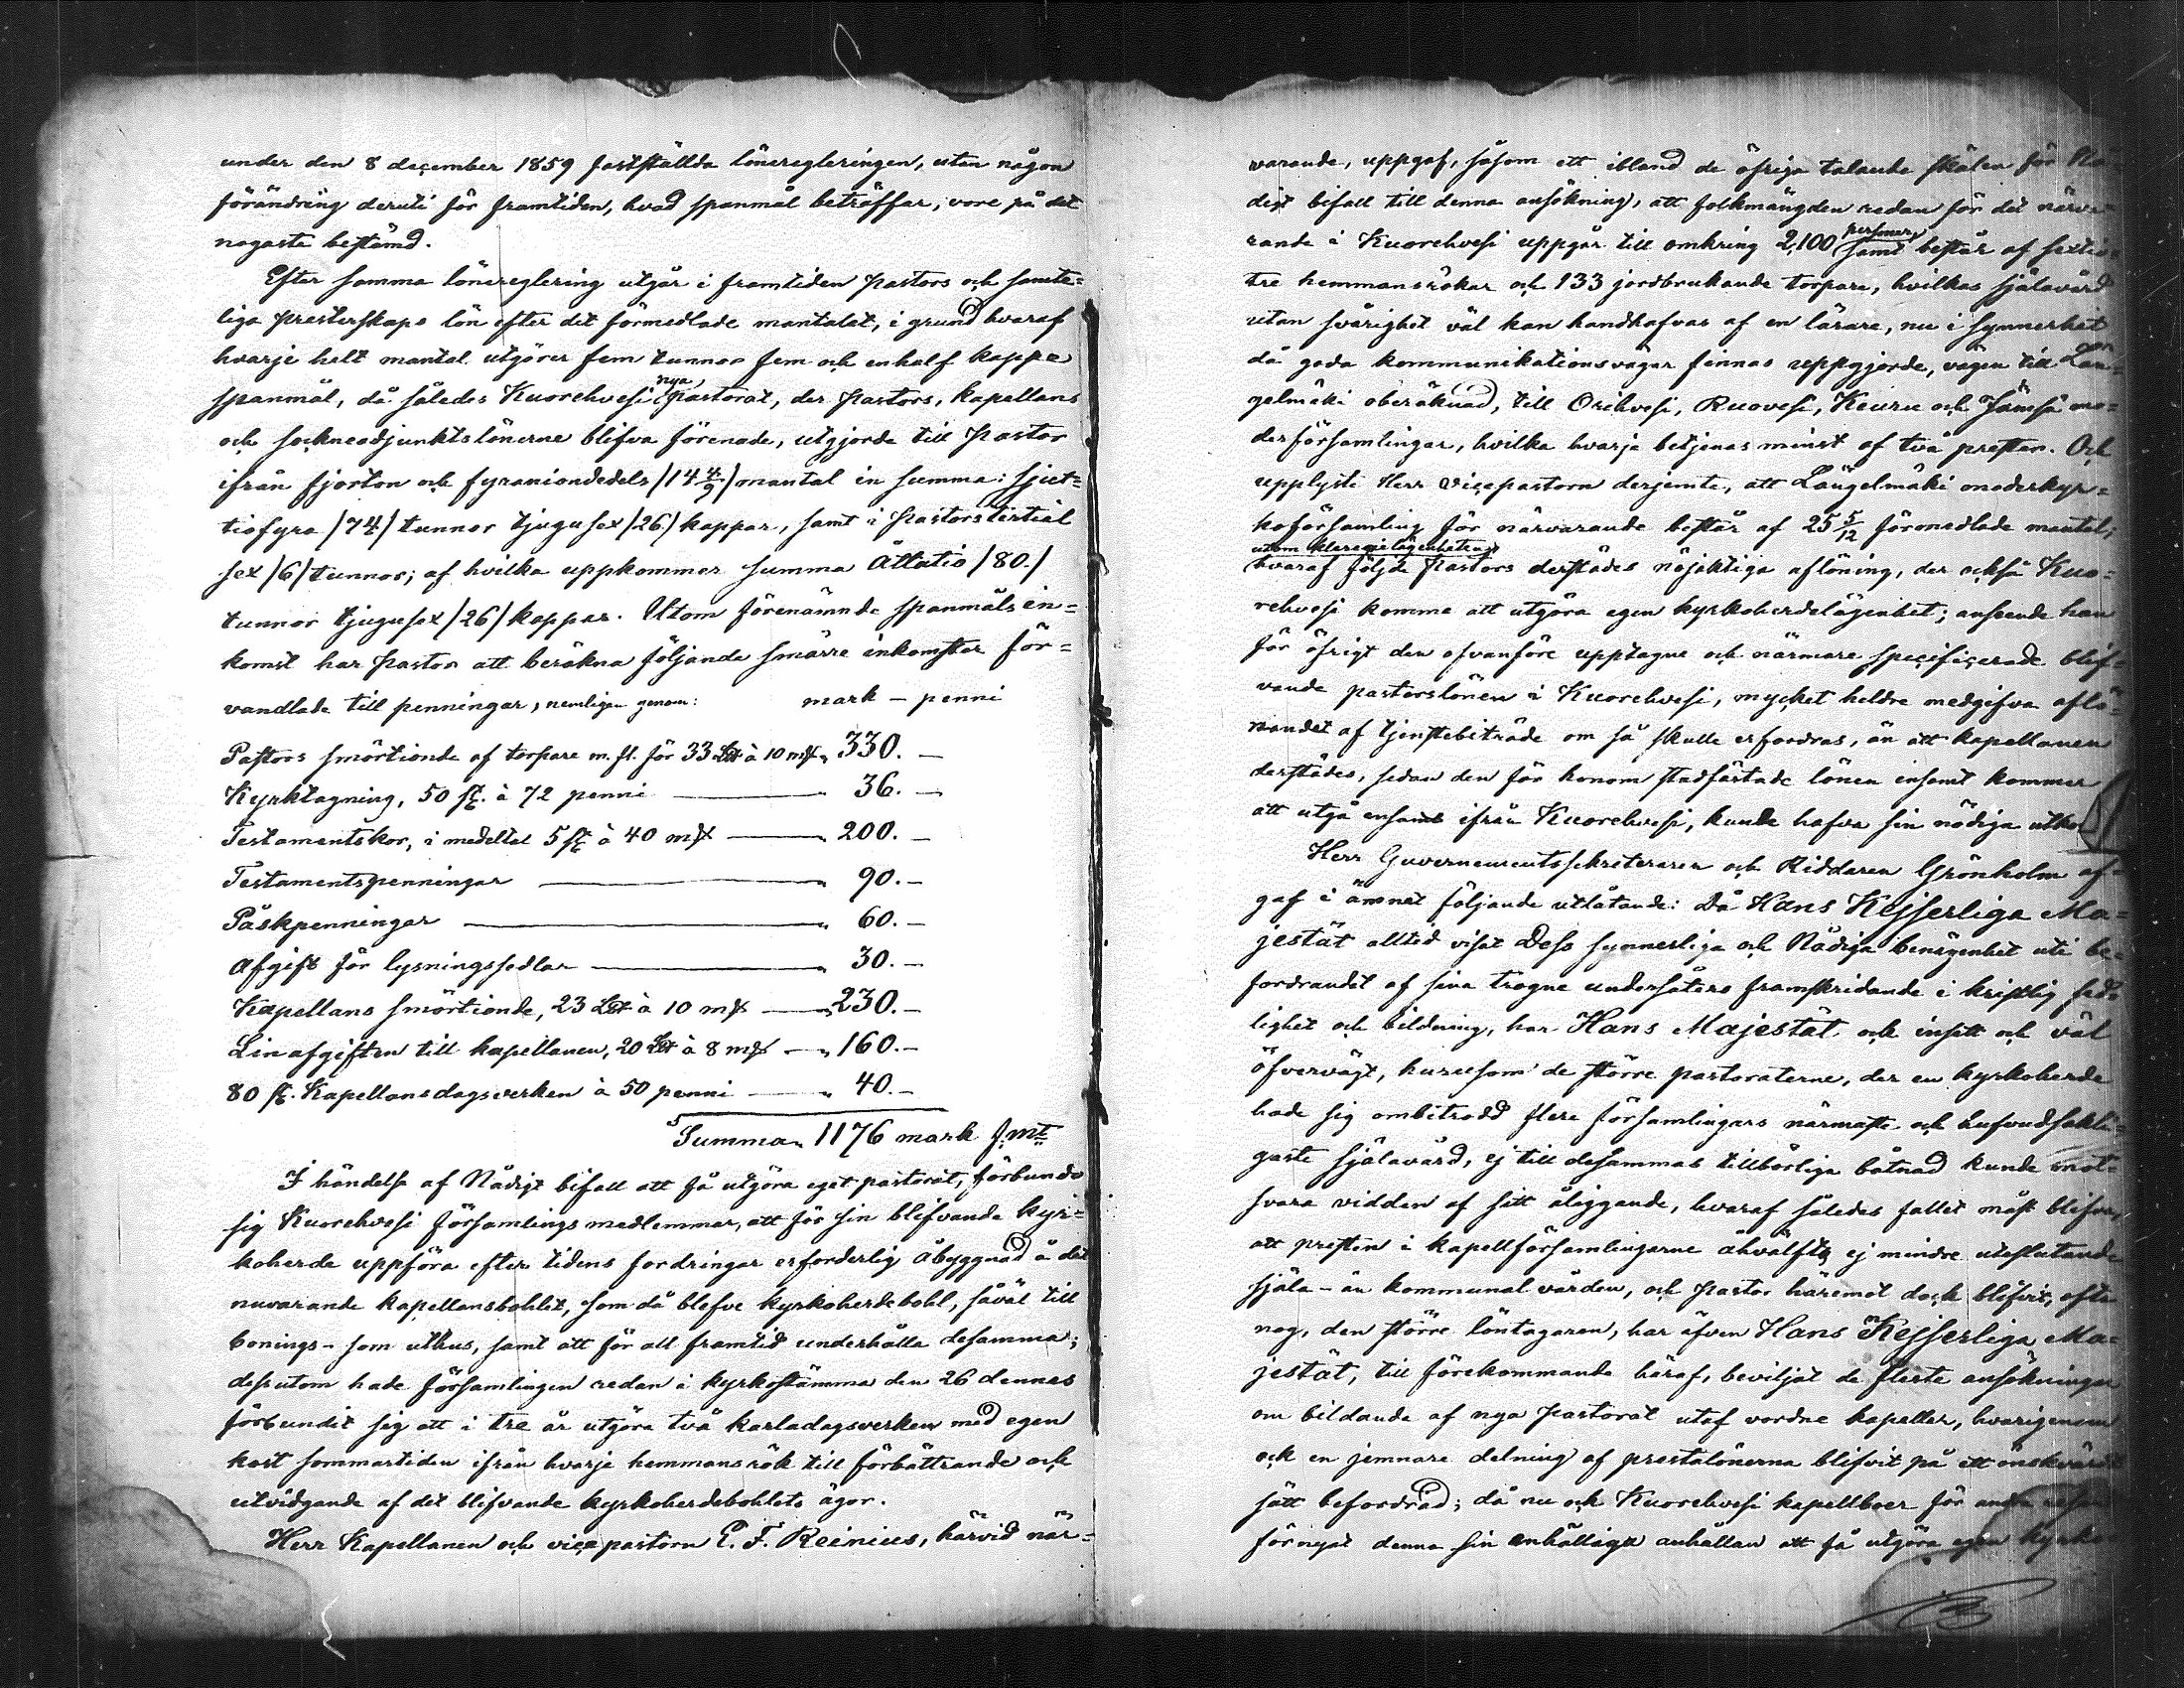 under den 8 december 1859 fastställda löneregleringen, utan någon
förändring deruti för framtiden, hvad spanmål beträffar, vore på det
nogaste bestämd.
Efter samma lönereglering utgår i framtiden pastors och samte=
liga presterskaps lön efter det förmedlade mantalet, i grund hvaraf
hvarje helt mantal utgörer fem tunnor fem och enhalf kappe
spanmål, då således Kuorehvesi nya pastorat, der pastors, kapellans
och sockneadjunktslönerne blifva förenade, utgjorde till pastor
ifrån fjorton och fyraniondedels /14 4/9/ mantal in summa: sjut=
tiofyra /74/ tunnor tjugusex /26/ kappar, samt i pastorstertial
sex /6/ tunnor; af hvilka uppkommer summa åttatio /80./
tunnor tjugusex /26/ kappar. Utom förenämnde spanmåls in=
komst har pastor att beräkna följande smärre inkomster för=
vandlade till penningar, nemligen genom: mark – penni
Pastors smörtionde af torpare m.fl. för 33 L℔ à 10 mk „ 330. –
Kyrktagning, 50 st. à 72 penni „ 36. –
Testamentskor, i medeltal 5 st. à 40 mk „ 200. –
Testamentspenningar „ 90. –
Påskpenningar „ 60. –
Afgift för lysningssedlar „ 30. –
Kapellans smörtionde, 23 L℔ à 10 mk „ 230. –
Linafgiften till kapellanen, 20 L℔ à 8 mk „ 160. –
80 st. Kapellansdagsverken à 50 penni „ 40. –
Summa „ 1176 mark f.mt
I händelse af Nådigt bifall att få utgöra eget pastorat, förbunde
sig Kuorehvesi församlings medlemmar, att för sin blifvande kyr=
koherde uppföra efter tidens fordringar erforderlig åbyggnad å det
nuvarande kapellansbohlet, som då blefve kyrkoherdebohl, såväl till
bonings- som uthus, samt att för all framtid underhålla desamma;
dessutom hade församlingen redan i kyrkostämma den 26 dennes
förbundit sig att i tre år utgöra två karladagsverken med egen
kost sommartiden ifrån hvarje hemmansrök till förbättrande och
utvidgande af det blifvande kyrkoherdebohlets ägor.
Herr Kapellanen och vicepastorn E. F. Reinius, härvid när=
varande, uppgaf, såsom ett ibland de öfriga talande skälen för Nå=
digt bifall till denna ansökning, att folkmängden redan för det närva
rande i Kuorehvesi uppgår till omkring 2,100 personer, samt består af sextio
tre hemmansrökar och 133 jordbrukande torpare, hvilkas själavård
utan svårighet väl kan handhafvas af en lärare, nu i synnerhet
då goda kommunikationsvägar finnas uppgjorde, vägen till Län=
gelmäki oberäknad, till Orihvesi, Ruovesi, Keuru och Jämsä mo=
derförsamlingar, hvilka hvarje betjenas minst af två prester. Och
upplyste Herr Vicepastorn derjemte, att Längelmäki moderkyr=
koförsamling för närvarande består af 25 5/12 förmedlade mantal;
utom klerecielägenheten,
hvaraf följde pastors derstädes nöjaktiga aflöning, der också Kuo=
rehvesi komme att utgöra egen kyrkoherdelägenhet; anseende han
för öfrigt den ofvanföre upptagne och närmare specificerade blif=
vande pastorslönen i Kuorehvesi, mycket heldre medgifva aflö=
nandet af tjenstebiträde om så skulle erfordras, än att kapellanen
derstädes, sedan den för honom stadfästade lönen ensamt kommer
att utgå ensamt ifrån Kuorehvesi, kunde hafva sin nödiga utkomst
Herr Guvernementssekreteraren och Riddaren Grönholm af=
gaf i ämnet följande utlåtande: Då Hans Kejserliga Ma=
jestät alltid visat Dess synnerliga och Nådiga benägenhet uti be=
fordrandet af sina trogne undersåters framskridande i kristlig sed=
lighet och bildning, har Hans Majestät och insett och väl
öfvervägt, hurusom de större pastoraterne, der en kyrkoherde
hade sig ombetrodd flere församlingars närmaste och hufvudsakli=
gaste själavård, ej till desammas tillbörliga båtnad kunde mot=
svara vidden af sitt åliggande, hvaraf således fallet måst blifva,
att presten i kapellförsamlingarne åhvälfts ej mindre uteslutande
själa- än kommunal vården, och pastor häremot dock blifvit, ofta
nog, den större löntagaren, har äfven Hans Kejserliga Ma=
jestät, till förekommande häraf, beviljat de fleste ansökningar
om bildande af nya pastorat utaf vordne kapeller, hvarigenom
och en jemnare delning af prestalönerna blifvit på ett önskvärdt
sätt befordrad; då nu och Kuorehvesi kapellboer för andra
förnyat denna sin enhälliga anhållan att få utgöra egen kyrko